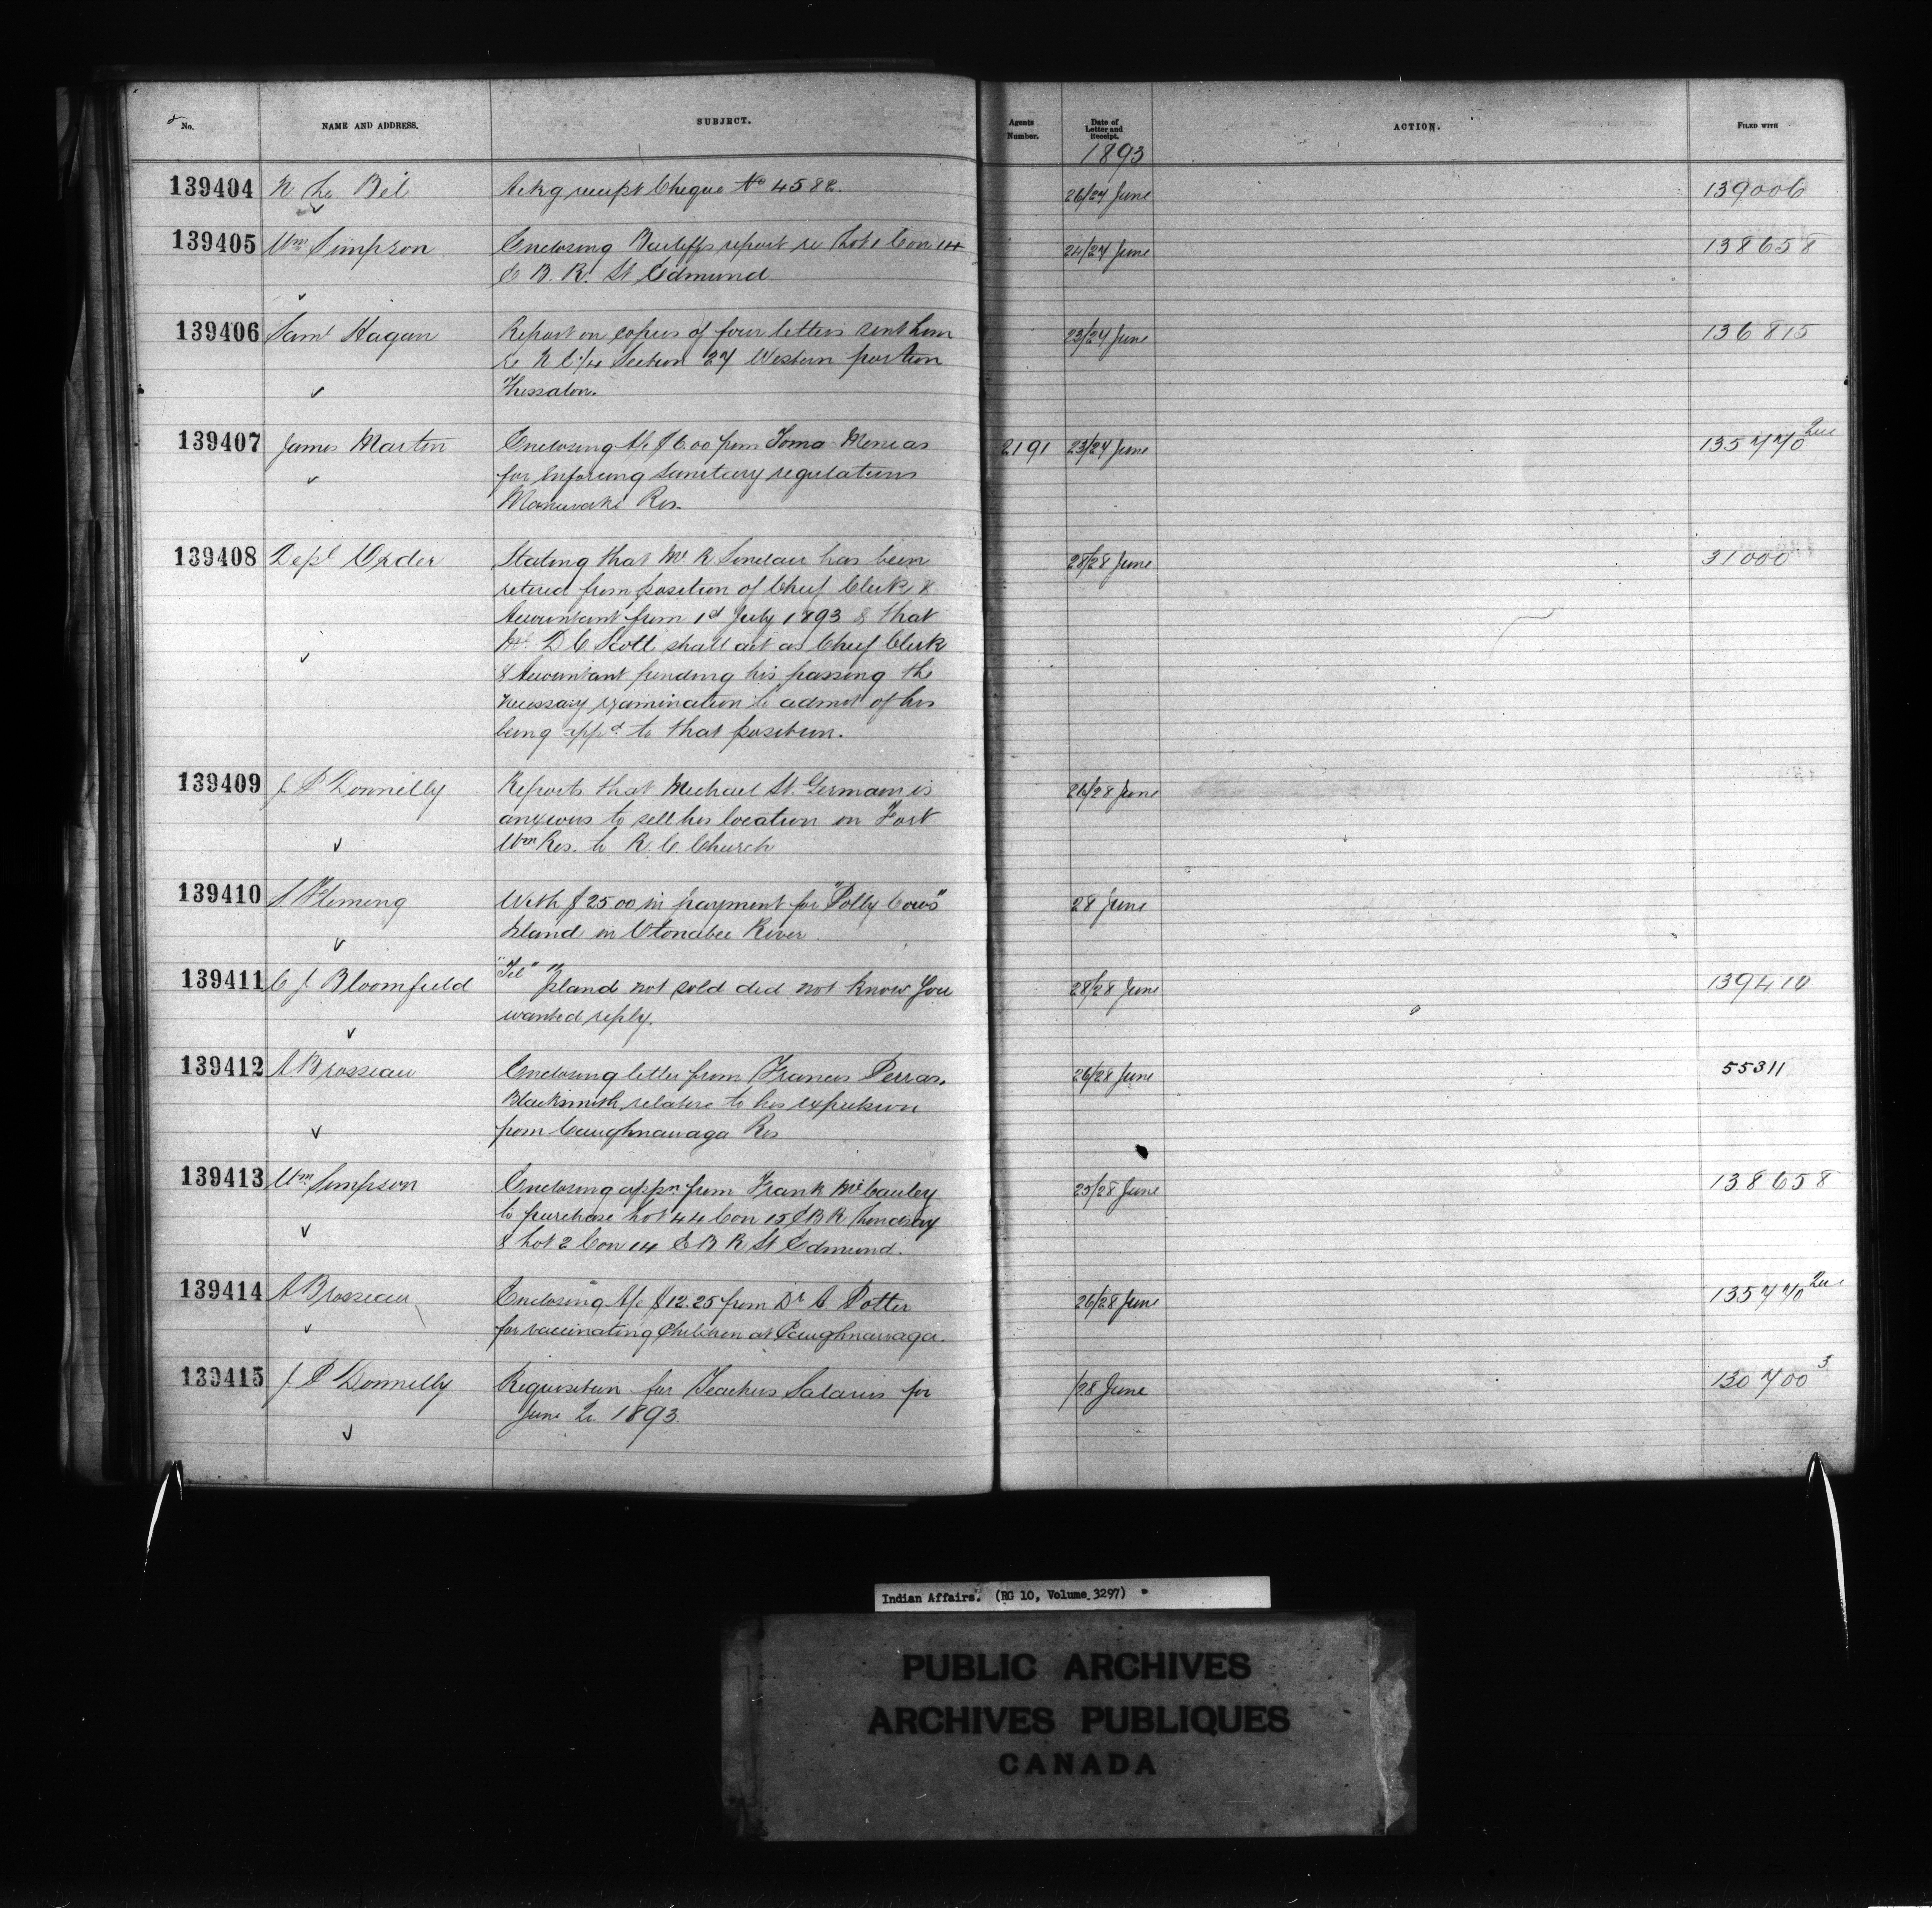 No. NAME AND ADDRESS. SUBJECT. Agents Number. Date of Letter and Receipt. ACTION. FILED WITH
1893
139404 N. Le Bel Ackg receipt Cheque No 4582. 26/27 June 139006
139405 Wm Simpson Enclosing Bailiffs report re Lot 1 Con 14 24/27 June 138658
E B. R. St Edmund
139406 Saml Hagan Report on copies of four letters sent him 23/27 June 136815
re N E 1/4 Section 27 Western portion
Thessalon.
139407 James Martin Enclosing A/c $6.00 from Toma Menias 2191 23/27 June 135770 2
for enforcing sanitary regulations
Maniwaki Res.
139408 Depl Order Stating that Mr R Sinclair has been 28/28 June 31000
retired from position of Chief Clerk &
Accountant from 1st July 1893 & that
Mr D C Scott shall act as Chief Clerk
& Accountant pending his passing the
necessary examination to admit of his
being appd to that position.
139409 J P Donnelly Reports that Michael St. Germain is 26/28 June
anxious to sell his location on Fort
Wm Res. to R. C. Church
139410 S. Fleming With $25 00 in payment for "Polly Cows" 28 June
Island in Otonabee River.
139411 C J Bloomfield "Tel" "Island not sold did not know you 28/28 June 139410
wanted reply.
139412 A Brosseau Enclosing letter from Francis Perras, 26/28 June 55311
Blacksmith, relative to his expulsion
from Caughnawaga Res
139413 Wm Simpson Enclosing appn from Frank McCauley 25/28 June 138658
to purchase Lot 44 Con 15 E B R Lindsay
& Lot 2 Con 14 E B R St Edmund.
139414 A Brosseau Enclosing A/c $12.25 from Dr A. Potter 26/28 June 135770 2
for vaccinating Children at Caughnawaga.
139415 J. P Donnelly Requisition for Teachers Salaries for /28 June 130700 3
June Qr 1893.
Indian Affairs. (RG 10, Volume 3297)
PUBLIC ARCHIVES
ARCHIVES PUBLIQUES
CANADA